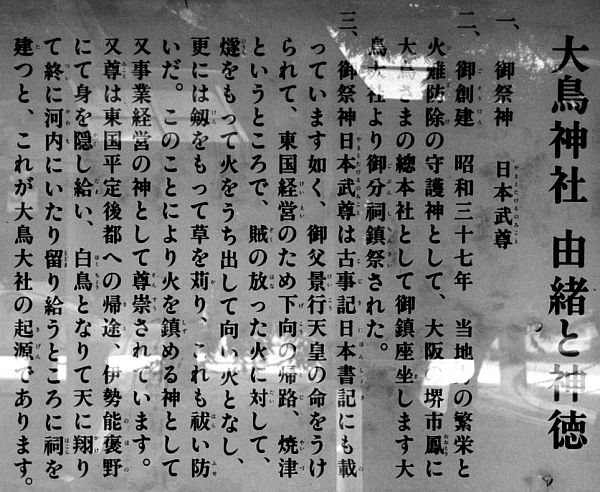 大鳥神社 由緒と神徳
一、御祭神 日本武尊
二、御創建 昭和三十七年 当地 の繁栄と
火難防除の守護神として、大阪の堺市鳳に
大鳥さまの總本社として御鎮座坐します大
鳥大社より御分祠鎮祭された。
三、御祭神日本武尊は古事記日本書記にも載
っています如く、御父景行天皇の命をうけ
られて、東国経営のため下向の帰路、焼津
というところで、賊の放った火に対して、
燧をもって火をうち出して向い火となし、
更には剱をもって草を苅り、これも祓い防
いだ。このことにより火を鎮める神として
又事業経営の神として尊崇されています。
又尊は東国平定後都への帰途、伊勢能褒野
にて身を隠し給い、白鳥となりて天に翔り
て終に河内にいたり留り給うところに祠を
建つと、これが大鳥大社の起源であります。